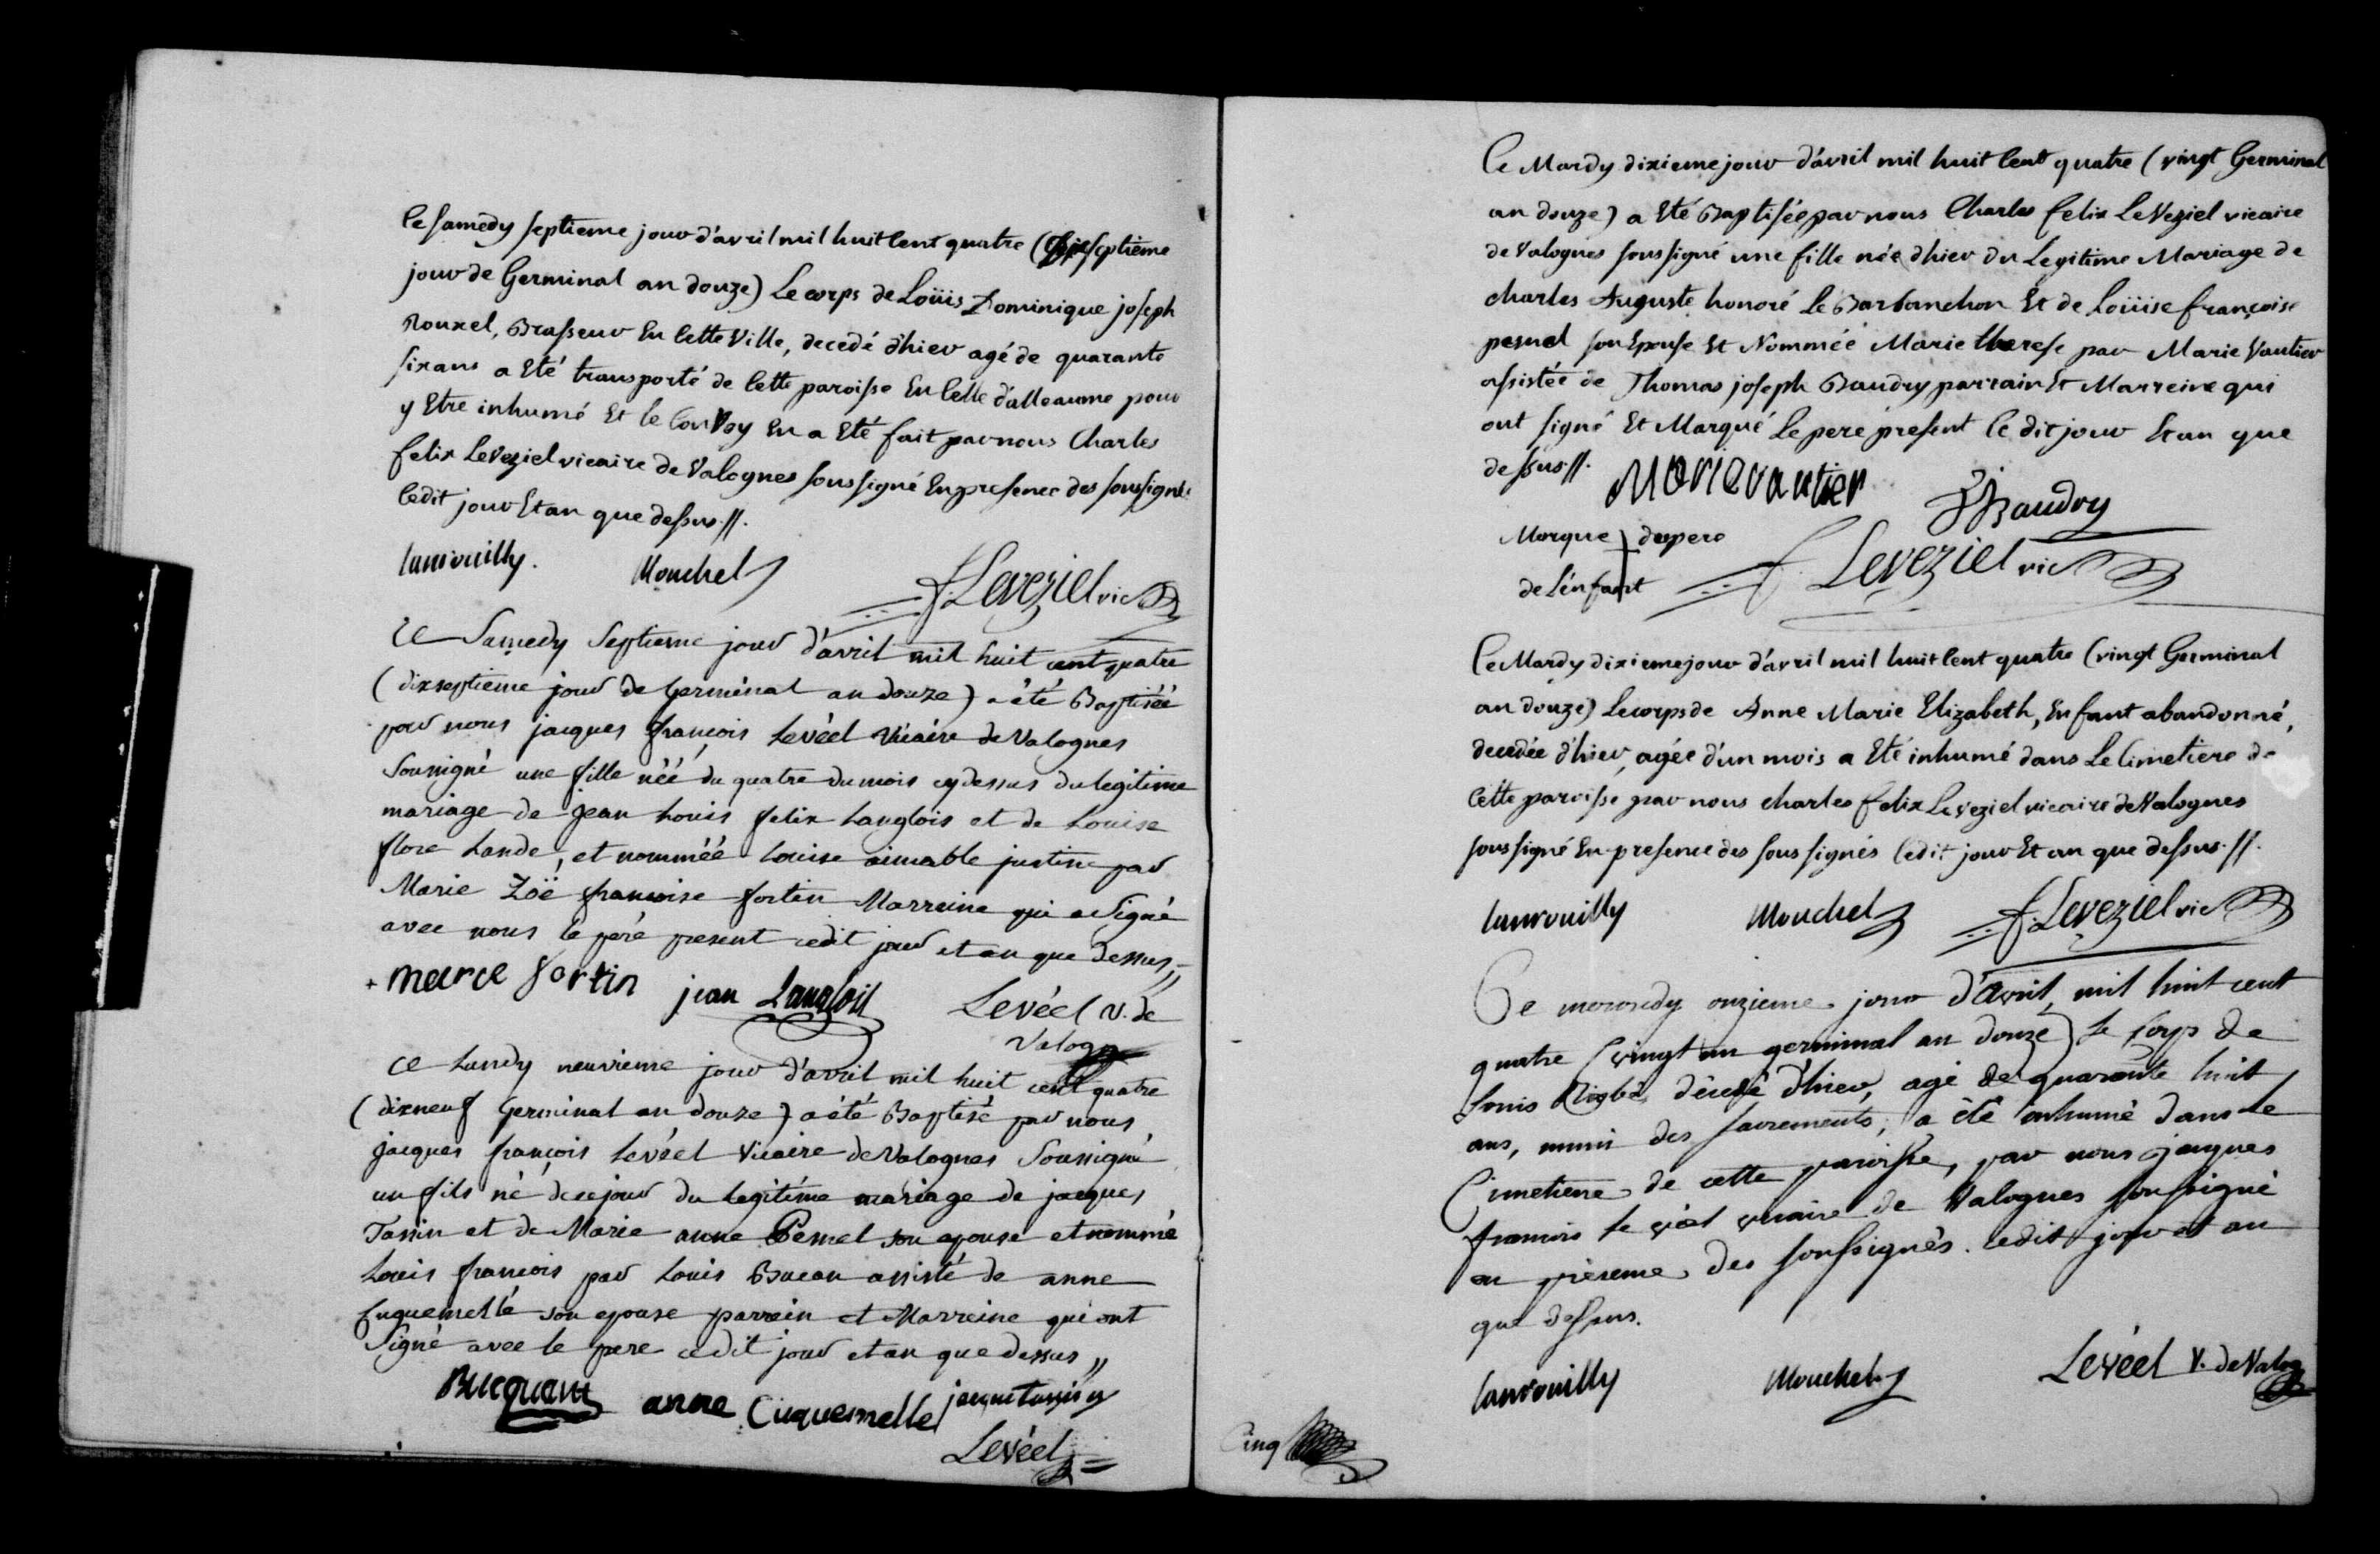 Ce samedy septieme jour d'avril mil huit cent quatre (dixseptieme
jour de Germinal an douze) Le corps de Loüis Dominique joseph
Rouxel, Brasseur En cette Ville, decedé d'hier agé de quarante
six ans a Eté transporté de cette paroisse En celle d'alleaume pour
y Etre inhumé Et le Convoy En a Eté fait par nous Charles
felix LeVeziel vicaire de Valognes soussigné En presence des soussignés
ledit jour Et an que dessus.//.
Lanrouilly. Mouchel f. Leveziel vic
Ce Samedy Septieme jour d'avril mil huit cent quatre
(dixseptieme jour de Germinal an douze) a été Baptiséé
par nous jacques françois Levéel Vicaire de Valognes
Soussigné une fille néé du quatre du mois cydessus du legitime
mariage de jean Louis felix Langlois et de Louise
flore Lande, et nomméé Louise aimable justine par
Marie Zoë francoise fortin Marreine qui a Signé
avec nous le péré present cedit jour et an que dessus,,
marce fortin jean Langlois Levéel v. de
Valog
Ce Lundy neuvieme jour d'avril mil huit cent quatre
(dixneuf Germinal an douze) a été Baptisé par nous
jacques françois Levéel Vicaire de Valognes Soussigné
un fils né de ce jour du legitime mariage de jacques
Tassin et de Marie anne Pesnel son epouse et nommé
Louis francois par Louis Bucan assisté de anne
Cuquemelle son epouse parrein et Marreine qui ont
Signé avec le pere cedit jour et an que dessus,,
Bucquam anne Cuquemelle jacque tassin
Levéel
Cinq
Ce Mardy dixieme jour d'avril mil huit cent quatre (vingt Germinal
an douze) a Eté Baptisée par nous Charles felix LeVeziel vicaire
de Valognes soussigné une fille née d'hier du Legitime Mariage de
charles Auguste honoré Le Barbanchon Et de Loüise françoise
pesnel son Epouse Et Nommée Marie therese par Marie Vautier
assistée de Thomas joseph Baudry parrain Et Marreine qui
ont signé Et Marqué Le pere présent le dit jour Et an que
dessus.//. Marie vautier Baudry
Marque du pere
de L'enfant f Leveziel vic
Ce Mardy dixieme jour d'avril mil huit cent quatre (vingt Germinal
an douze) Le corps de Anne Marie Elizabeth, Enfant abandonné,
decedée d'hier, agée d'un mois a Eté inhumé dans Le Cimetiere de
Cette paroisse par nous charles felix Leveziel vicaire de Valognes
soussigné En presence des soussignés ledit jour Et an que dessus.//.
Lanrouilly Mouchel f. Leveziel vic
Ce mercredy onzieme jour d'avril, mil huit cent
quatre (vingt un germinal an douze) Le Corps de
Louis décedé d'hier, agé de quarante huit
ans, muni des sacrements, a été inhumé dans Le
Cimetiere de cette paroisse, par nous jacques
francois Le véel vicaire de Valognes soussigné
en présence des soussignés. cedit jour et an
que dessus.
Lanrouilly Mouchel Levéel V. de Valog